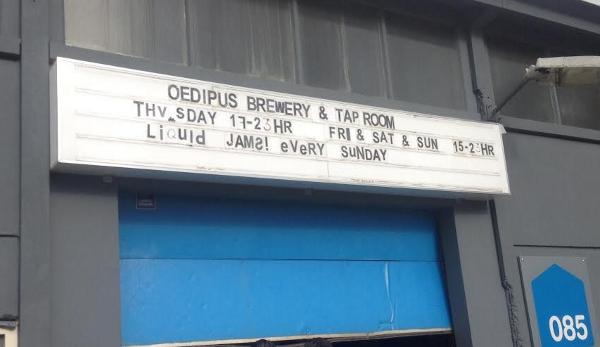 OEDIPUS BREWERY & TAP ROOM
THV SDAY 17-23HR FRI & SAT & SUN 15-23HR
LiQuid JAMS! eVeRY SUNDAY
085